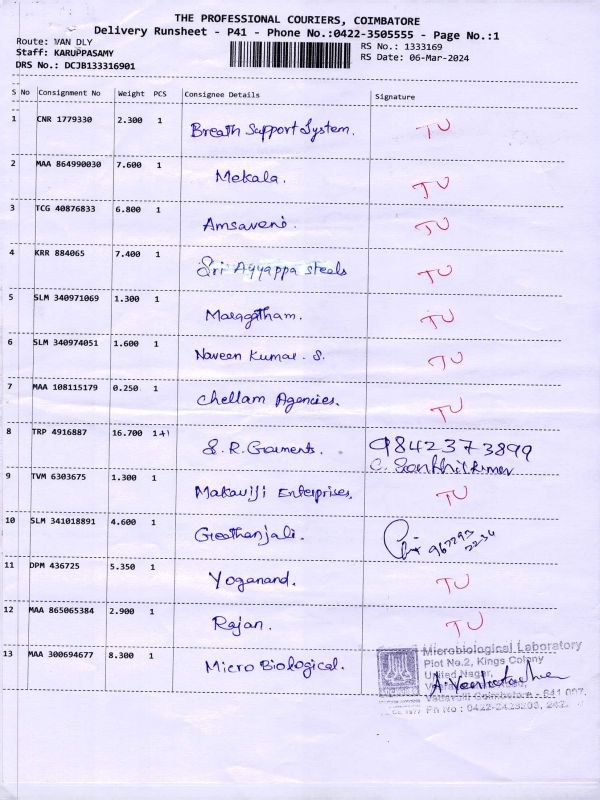 THE PROFESSIONAL COURIERS, COIMBATORE
Delivery Runsheet - P41 - Phone No.:0422-3505555 - Page No.:1
Route: VAN DLY
Staff: KARUPPASAMY
DRS No.: DCJB133316901
RS No.: 1333169
RS Date: 06-Mar-2024
S No Consignment No Weight PCS Consignee Details Signature
1 CNR 1779330 2.300 1 Breath Support System. TU
2 MAA 864990030 7.600 1 Mekala. TU
3 TCG 40876833 6.800 1 Amsaveni. TU
4 KRR 884065 7.400 1 Sri Ayyappa steels TU
5 SLM 340971069 1.300 1 Maragatham. TU
6 SLM 340974051 1.600 1 Naveen Kumar. S. TU
7 MAA 108115179 0.250 1 Chellam Agencies. TU
8 TRP 4916887 16.700 1+1 S. R. Garments. 9842373899
C. Santhil Kumar
9 TVM 6303675 1.300 1 Makaviji Enterprises. TU
10 SLM 341018891 4.600 1 Geethanjali.
11 DPM 436725 5.350 1 Yoganand. TU
12 MAA 865065384 2.900 1 Rajan. TU
13 MAA 300694677 8.300 1 Micro Biological.
Microbiological Laboratory
Plot No.2, Kings Colony
United Nagar,
Coimbatore - 641 007.